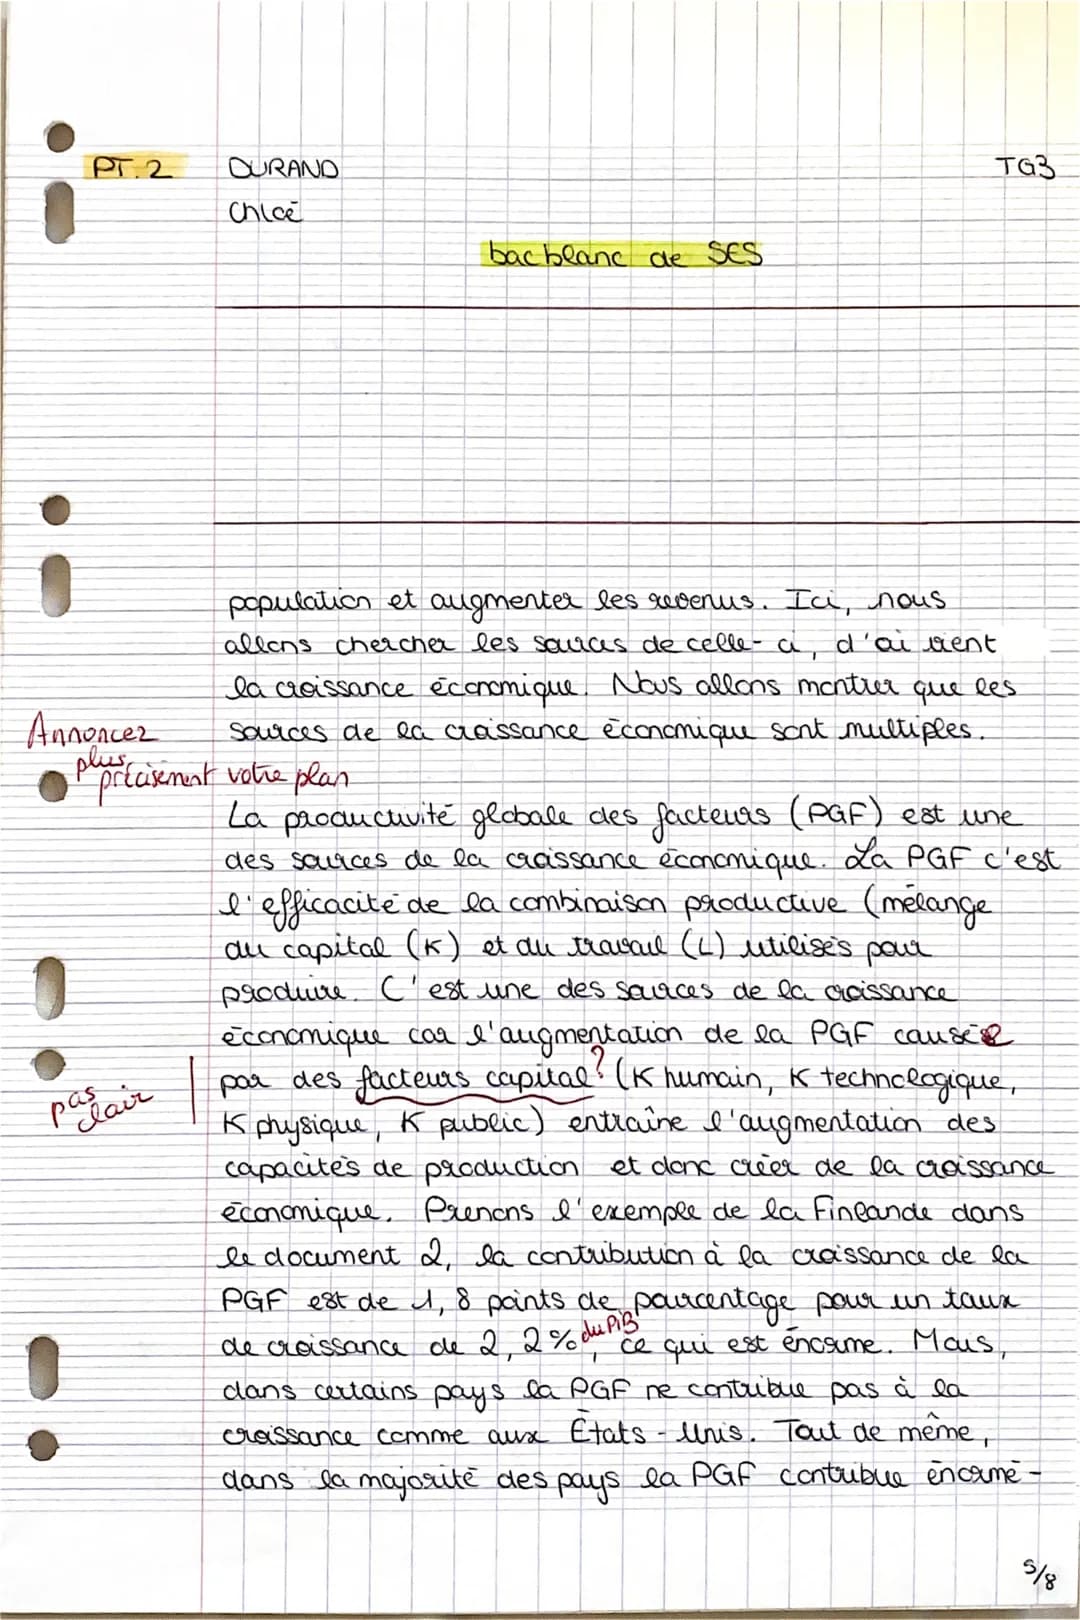 PT.2 DURAND TG3
Chloé
bac blanc de SES
population et augmenter les revenus. Ici, nous
allons chercher les sources de celle-ci, d'où vient
la croissance économique. Nous allons montrer que les
Annoncez sources de la croissance économique sont multiples.
plus
précisément votre plan
La productivité globale des facteurs (PGF) est une
des sources de la croissance économique. La PGF c'est
l'efficacité de la combinaison productive (mélange
du capital (K) et du travail (L) utilisés pour
produire. C'est une des sources de la croissance
économique car l'augmentation de la PGF causée
par des facteurs capital ? (K humain, K technologique,
pas
clair
K physique, K public) entraîne l'augmentation des
capacités de production et donc créer de la croissance
économique. Prenons l'exemple de la Finlande dans
le document 2, la contribution à la croissance de la
PGF est de 1,8 points de pourcentage pour un taux
de croissance de 2,2% du PIB, ce qui est énorme. Mais,
dans certains pays la PGF ne contribue pas à la
croissance comme aux États-Unis. Tout de même,
dans la majorité des pays la PGF contribue énormé-
5/8